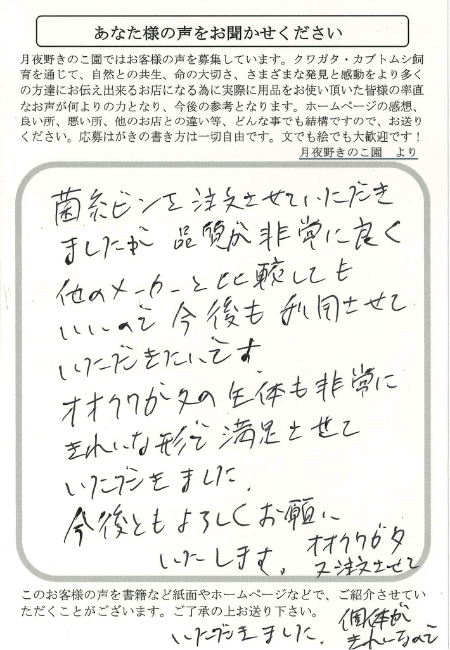 あなた様の声をお聞かせください
月夜野きのこ園ではお客様の声を募集しています。クワガタ・カブトムシ飼
育を通じて、自然との共生、命の大切さ、さまざまな発見と感動をより多く
の方達にお伝え出来るお店になる為に実際に用品をお使い頂いた皆様の率直
なお声が何よりの力となり、今後の参考となります。ホームページの感想、
良い所、悪い所、他のお店との違い等、どんな事でも結構ですので、お送り
ください。応募はがきの書き方は一切自由です。文でも絵でも大歓迎です！
月夜野きのこ園　より
菌糸ビンを注文させていただき
ましたが 品質が非常に良く
他のメーカーと比較しても
いいので 今後も利用させて
いただきたいです。
オオクワガタの生体も非常に
きれいな形で満足させて
いただきました。
今後ともよろしくお願い
いたします。
オオクワガタ
又注文させて
このお客様の声を書籍など紙面やホームページなどで、ご紹介させてい
ただくことがございます。ご了承の上お送り下さい。
いただきました。
個体が
きれいなので